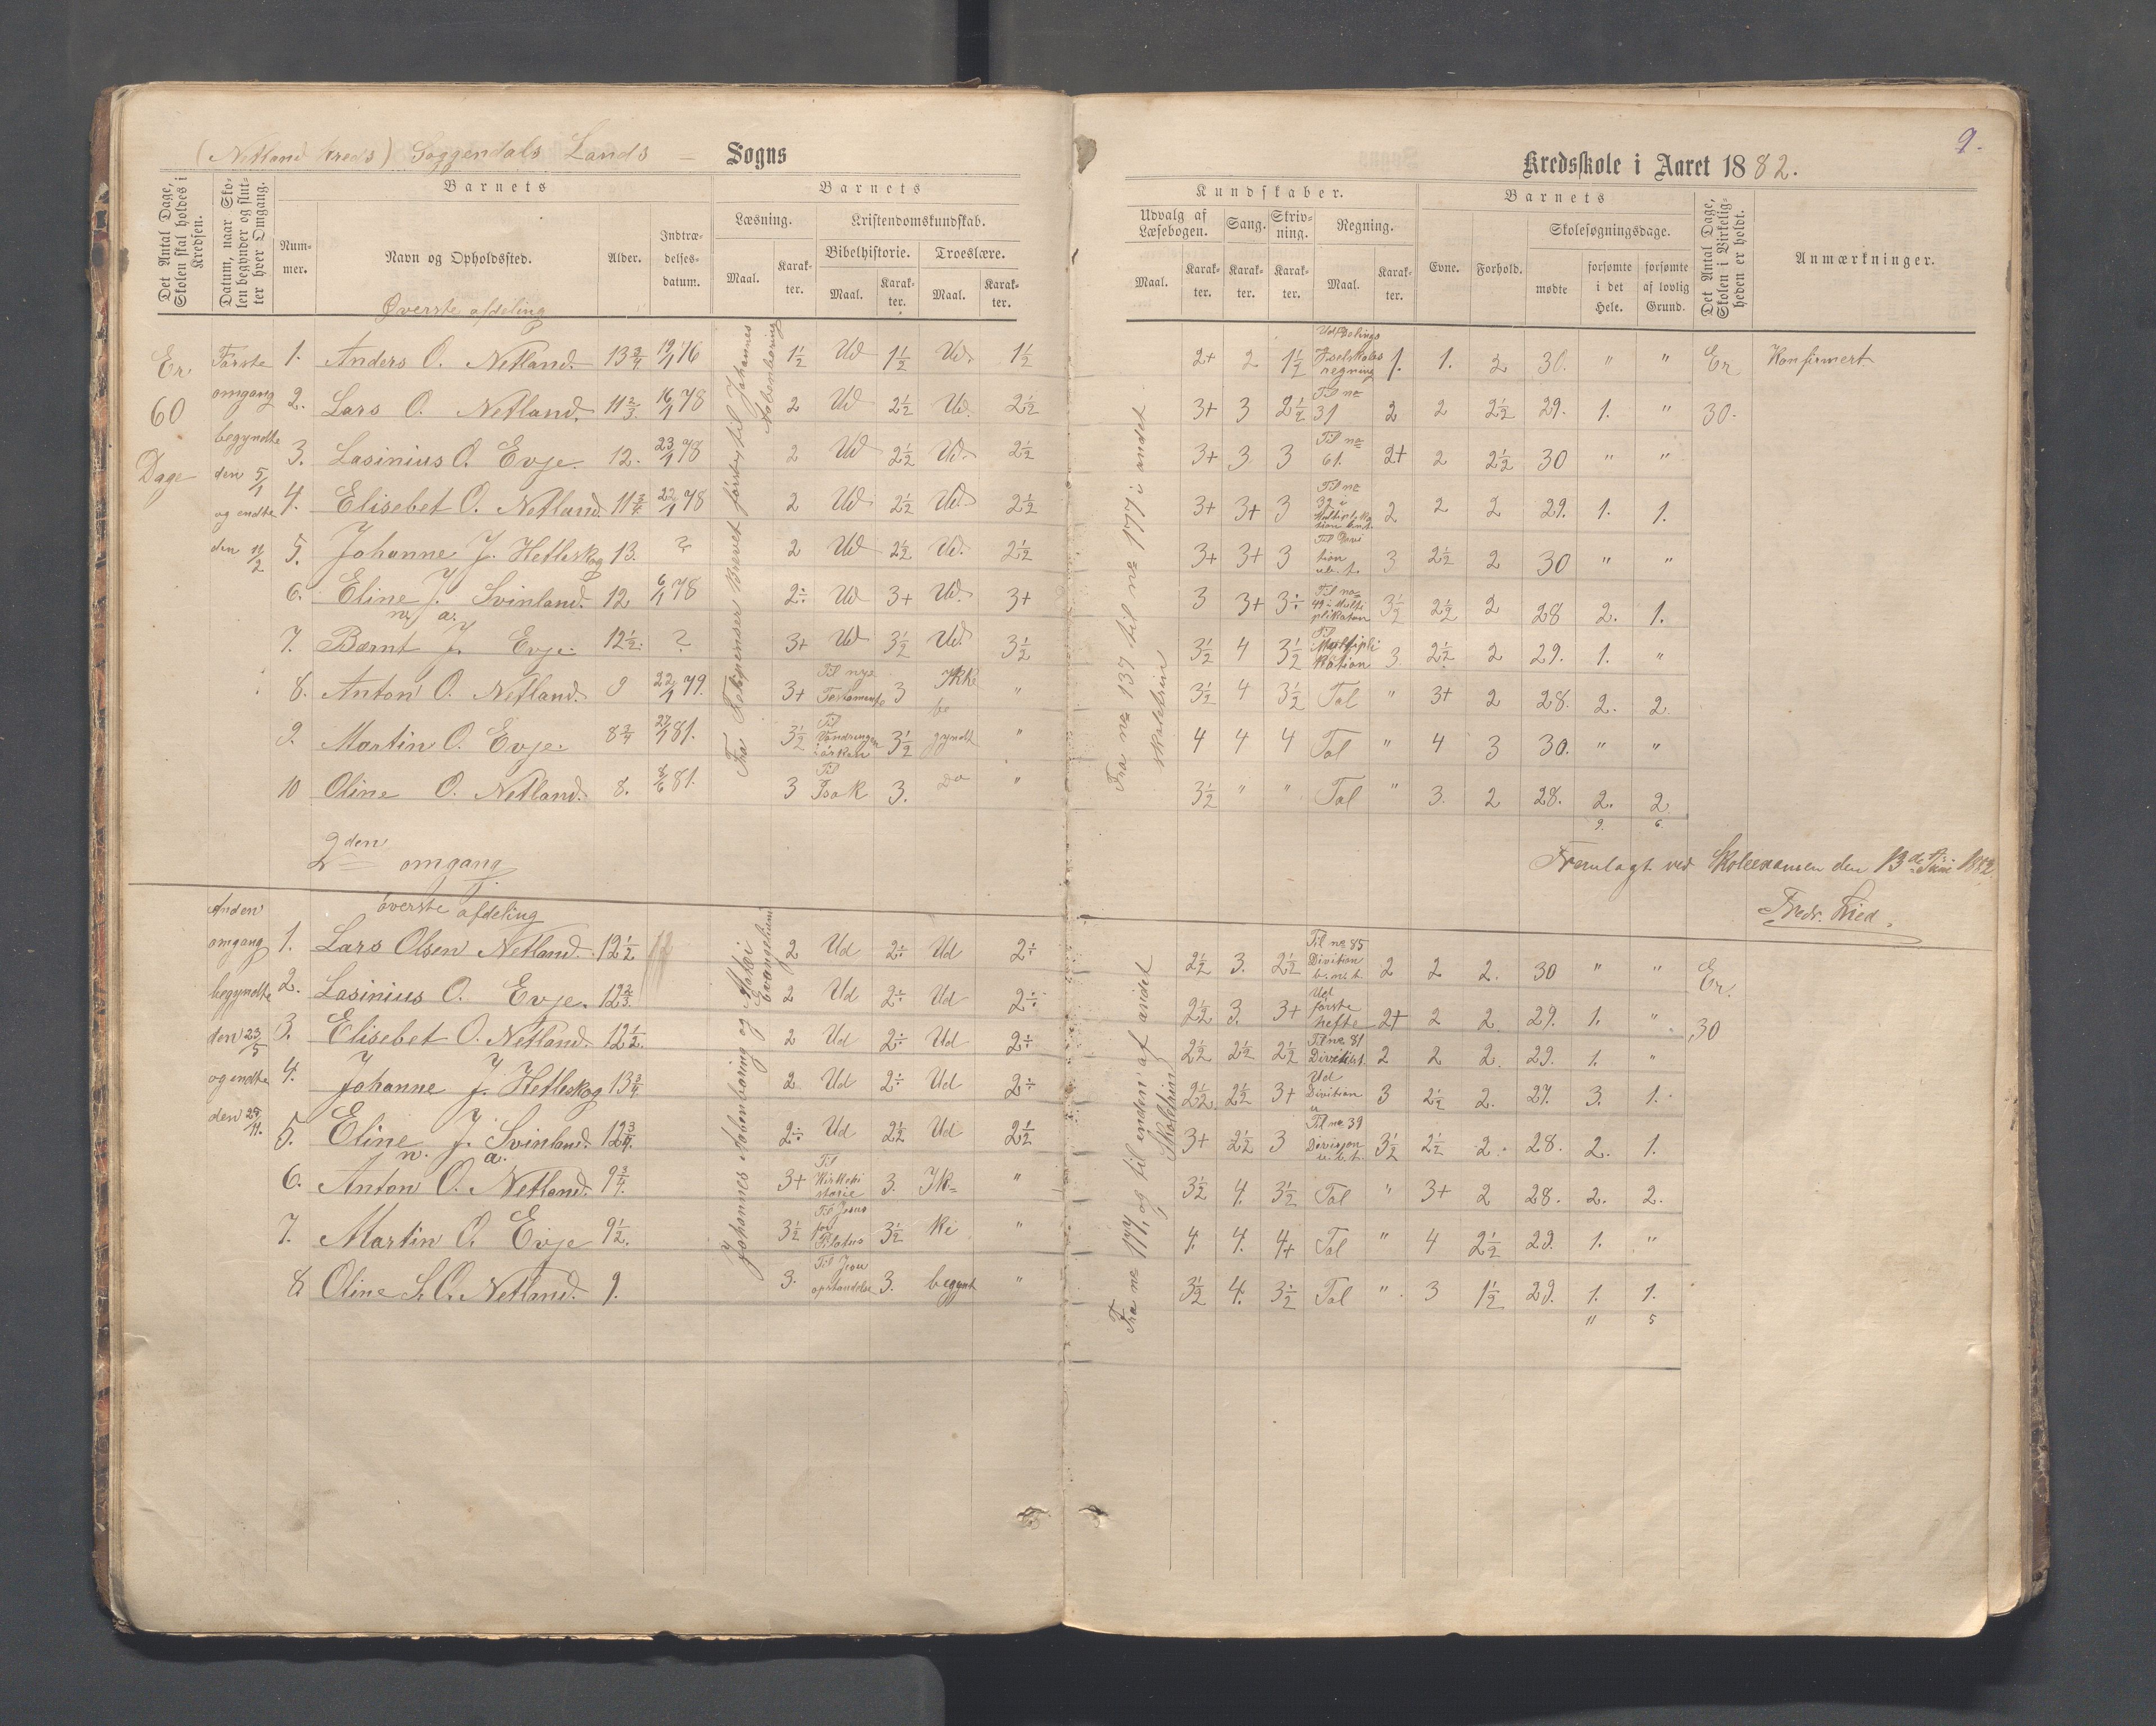 (Netland Kreds) Soggendals Lands – Sogns
Kredsskole i Aaret 1882.
9.
Det Antal Dage, Skolen skal holdes i Kredsen.
Datum, naar Skolen begynder og slutter hver Omgang.
Barnets
Nummer.
Navn og Opholdssted.
Alder.
Indtrædelsesdatum.
Barnets
Læsning.
Kristendomskundskab.
Bibelhistorie.
Troeslære.
Maal.
Karakter.
Maal.
Karakter.
Maal.
Karakter.
Kundskaber.
Udvalg af Læsebogen.
Sang.
Skrivning.
Regning.
Maal.
Karakter.
Karakter.
Karakter.
Maal.
Karakter.
Barnets
Evne.
Forhold.
Skolesøgningsdage.
mødte
forsømte i det Hele.
forsømte af lovlig Grund.
Det Antal Dage, Skolen i Virkeligheden er holdt.
Anmærkninger.
Øverste afdeling
Er 60 Dage
Første omgang begyndte den 5/1 og endte den 11/2
1. Anders O. Netland. 13 3/4 19/1 76 1½ Ud 1½ Ud. 1½ 2+ 2 1½ regning 1. 1. 2 30. " " Er Konfirmert
2. Lars O. Netland. 11 2/3 16/1 78 2 Ud 2½ Ud. 2½ 3+ 3 2½ Til no 31 2 2 2½ 29. 1. " 30.
3. Lasinius O. Evje. 12. 23/1 78 2 Ud 2½ Ud. 2½ 3+ 3 3 Til no 61. 2+ 2 2½ 30 " "
4. Elisebet O. Netland 11 3/4 22/1 78 2 Ud 2½ Ud. 2½ 3+ 3+ 3 Til no 39 i 2 2 2 29. 1. 1.
5. Johanne J. Hetleskog 13. ? 2 Ud 2½ Ud. 2½ 3+ 3+ 3 Til Divition 3 2½ 2 30 " "
6. Eline J. Svinland. 12 6/1 78 2÷ Ud 3+ Ud. 3+ 3 3+ 3÷ Til no 49 i Multiplikation 3½ 2½ 2 28 2. 1.
n. a.
7. Bærnt J. Evje. 12½. ? 3+ Ud 3½ Ud. 3½ 3½ 4 3½ Til Multiplikation 3 2½ 2 29. 1. "
8. Anton O. Netland. 9 22/1 79. 3+ Til nye Testamente 3 Ikke " 3½ 4 3½ Tal " 3+ 2 28. 2. 2
9. Martin O. Evje. 8 3/4 27/1 81. 3½ Til Vandringen i ørken 3½ begyndt " 4 4 4 Tal " 4 3 30. " "
10 Oline O. Netland. 8. 8/6 81. 3 Til Isak 3. Do " 3½ " " Tal " 3. 2 28. 2. 2.
9. 6.
Fra Fetigenser Brevet førstig til Johannes Aabenbaring
Fra no 137 til no 177 i andet skoletrin
2den omgang
Fremlagt ved Skoleexamen den 13de Juni 1882
Fredr. Lied.
øverste afdeling
Anden omgang begyndte den 23/5 og endte den 25/11.
1. Lars Olsen Netland. 12½ 2 Ud 2÷ Ud 2÷ 2½ 3. 2½ Til no 85 Divition 2 2 2. 30 " " Er.
2. Lasinius O. Evje. 12 2/3. 2 Ud 2÷ Ud 2÷ 2½ 3. 3+ Ud første hefte 2+ 2 2 29. 1. " 30
3. Elisebet O. Netland. 12½. 2 Ud 2÷ Ud 2÷ 2½ 2½ 2½ Til no 81 2 2 2. 29. 1. "
4. Johanne J. Hetleskog 13 3/4 2 Ud 2÷ Ud 2÷ 2½ 2½ 3+ Ud Divition 3 2½ 2. 27. 3. 1.
5. Eline J. Svinland. 12 3/4. 2÷ Ud 2½ Ud 2½ 3+ 2½ 3 Til no 39 Divisjon u.b.t. 3½ 2½ 2. 28. 2. 1.
n. a.
6. Anton O. Netland. 9 3/4. 3+ Til Kirkehistorie 3. Ik= " 3½ 4. 3½ Tal " 3+ 2 28. 2. 2.
7. Martin O. Evje 9½. 3½ Til Jesus for Pilatus 3½ ke " 4. 4. 4+ Tal " 4 2½ 29. 1. "
8. Oline S. O. Netland. 9. 3. Til Jesu opstandelse 3. begynt " 3½ 4. 3½ Tal " 3 1½ 29. 1. 1.
11 5
Johannes Aabenbaring og Matæi Evangelium
Fra no 177, og til enden af andet Skoletrin